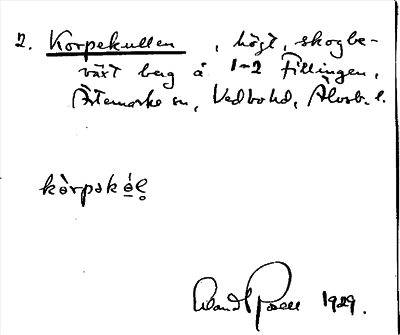 2. Korpekullen, högt, skogbe-
växt berg å 1-2 Fillingen,
Ärtemarks sn, Vedbohd, Älvsb. l.
kòrpək
1929.